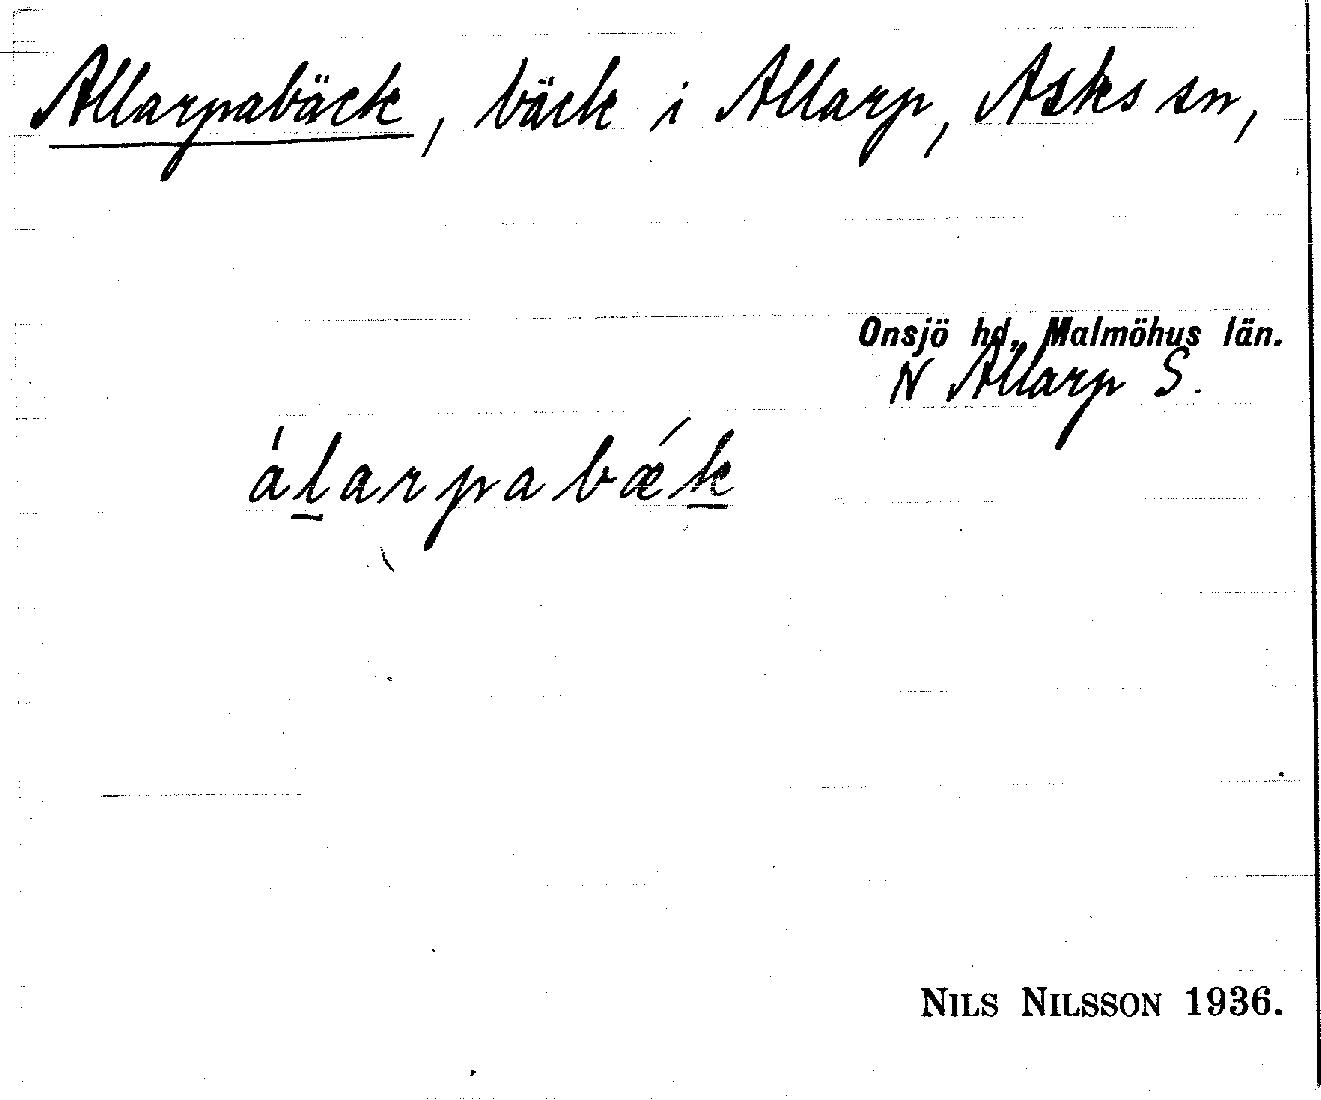 Allarpabäck, bäck i Allarp, Asks sn,
Onsjö hd., Malmöhus län.
N Allarp S.
ál̲arpabǽk̲
NILS NILSSON 1936.